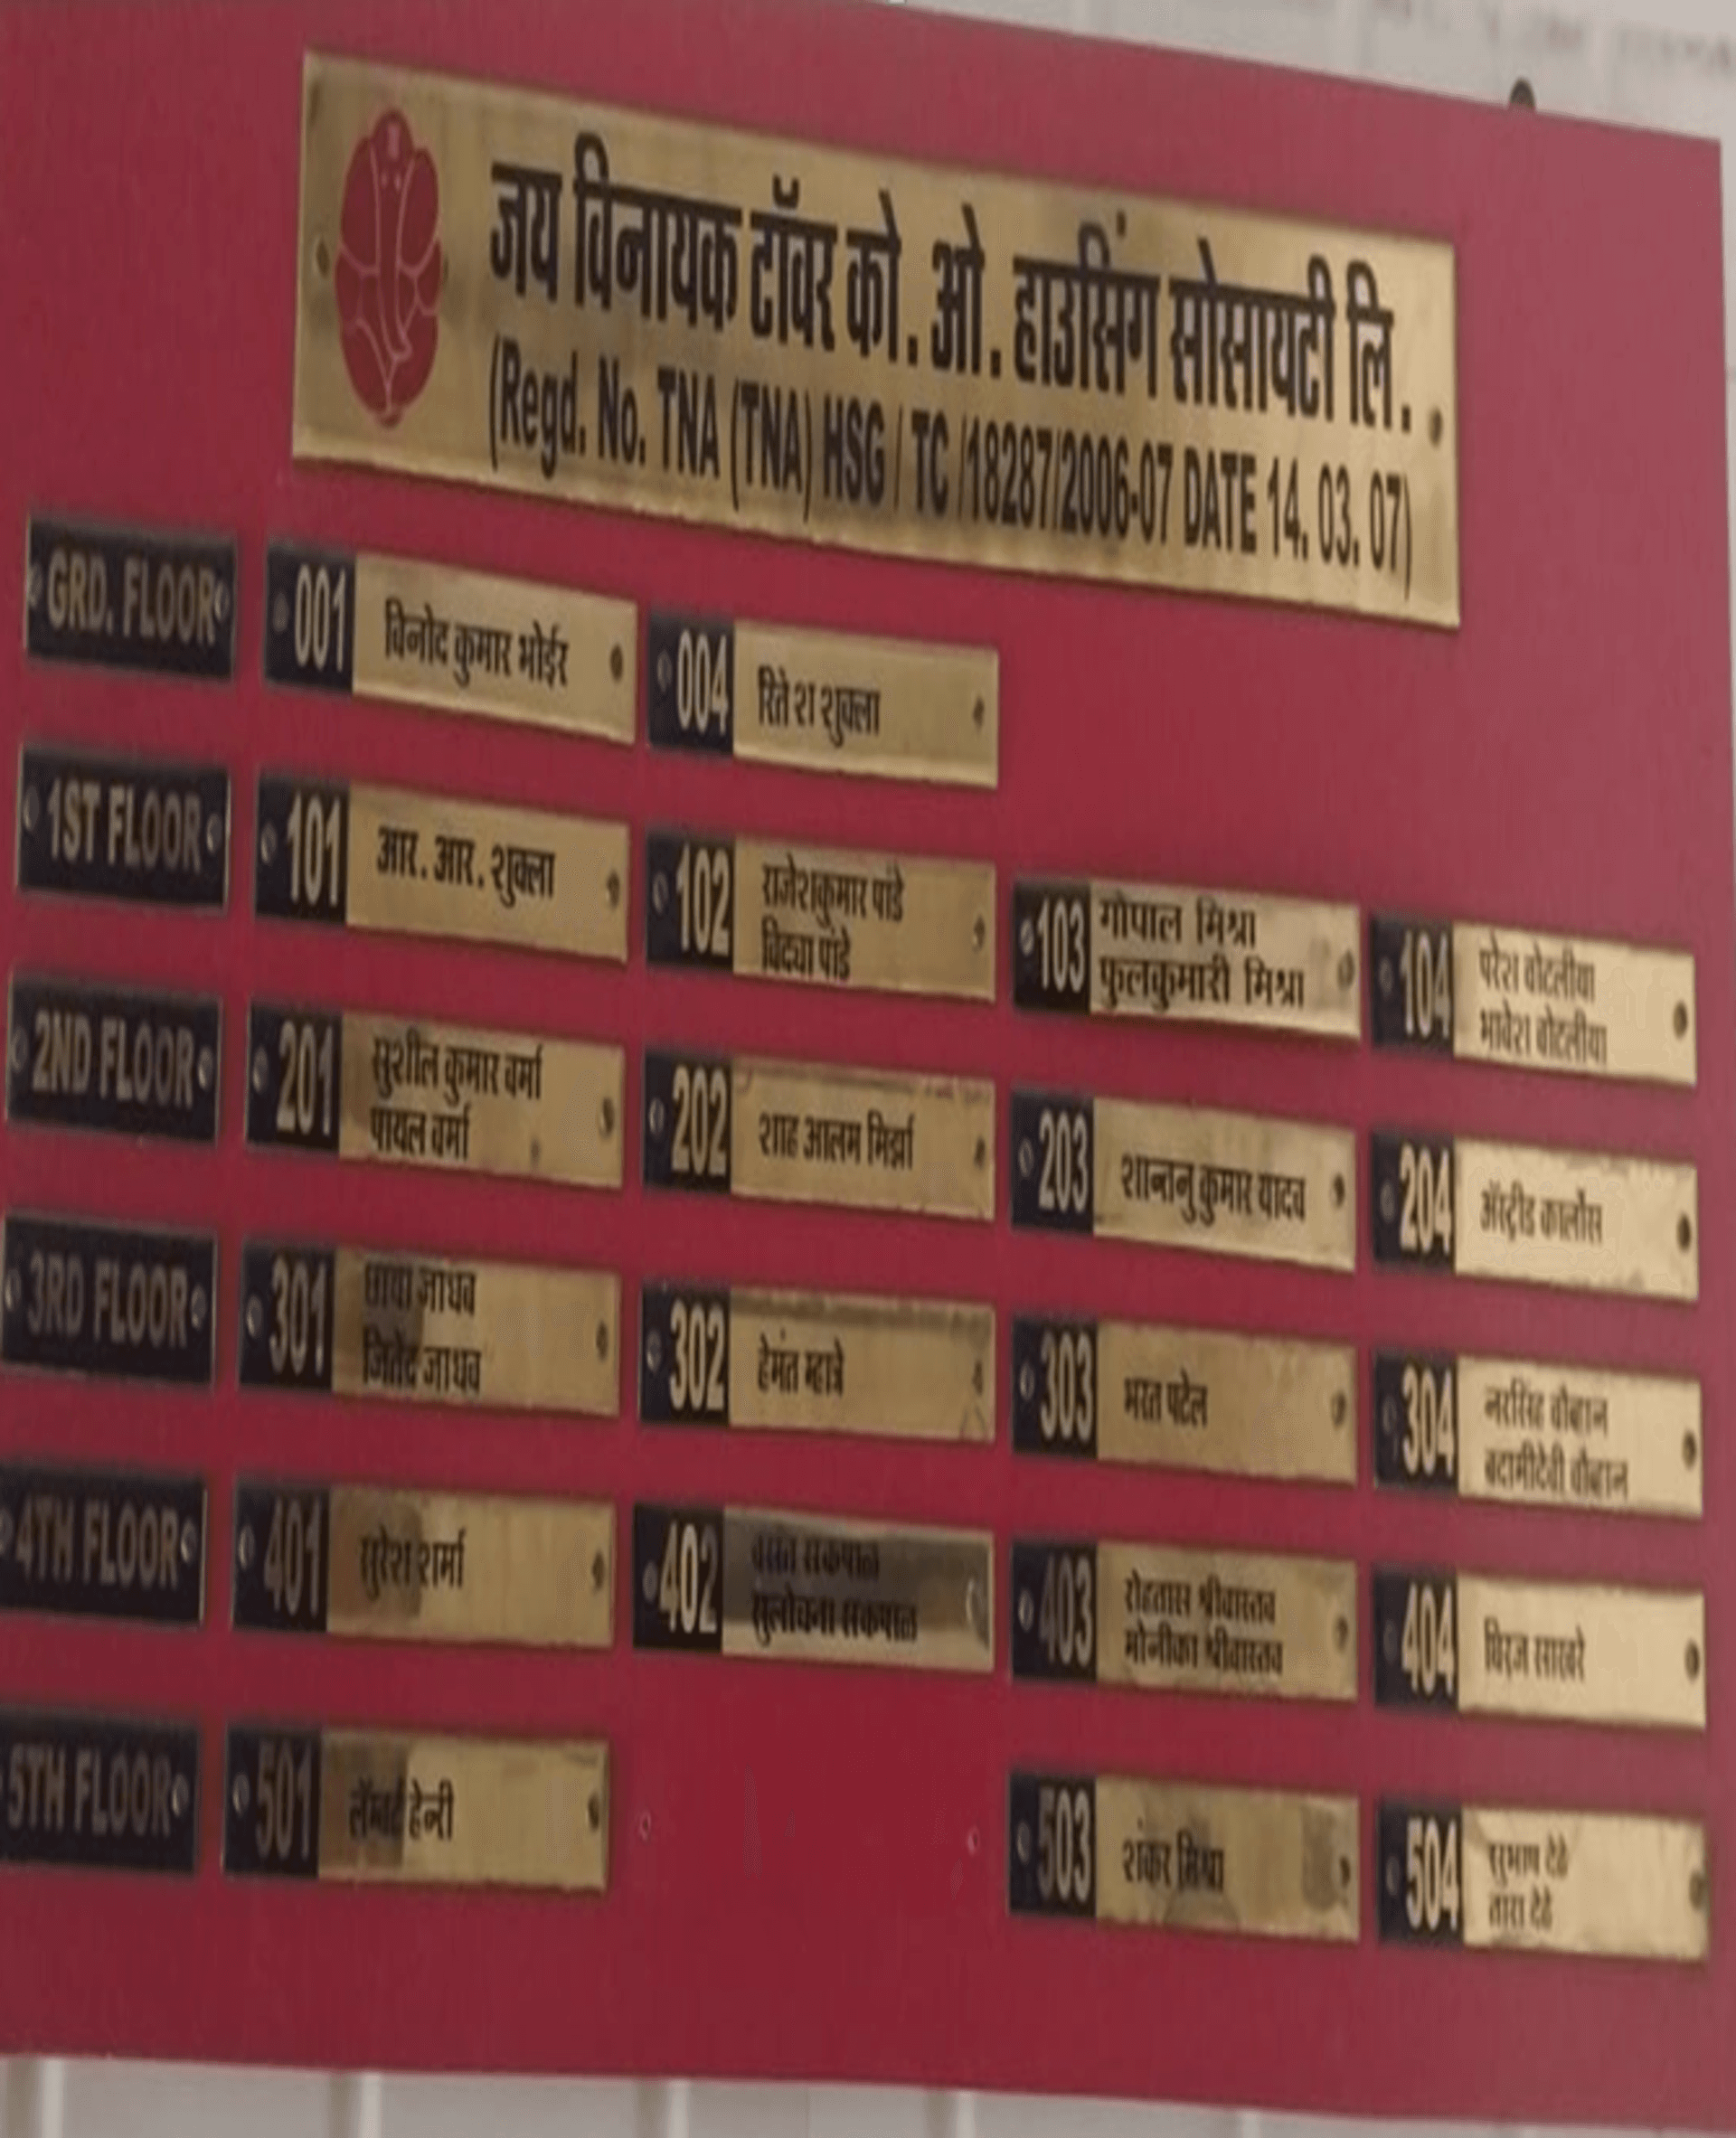 जय विनायक टॉवर को. ओ. हाउसिंग सोसायटी लि.
(Regd. No. TNA (TNA) HSG / TC /18287/2006-07 DATE 14. 03. 07)
GRD. FLOOR
001 विनोद कुमार भोईर
004 रितेश शुक्ला
1ST FLOOR
101 आर. आर. शुक्ला
102 राजेशकुमार पांडे
विद्या पांडे
103 गोपाल मिश्रा
फुलकुमारी मिश्रा
104 परेश बोटलीया
भावेश बोटलीया
2ND FLOOR
201 सुशील कुमार वर्मा
पायल वर्मा
202 शाह आलम मिर्झा
203 शान्तनु कुमार यादव
204 ॲस्ट्रीड कार्लोस
3RD FLOOR
301 छाया जाधव
जितेंद्र जाधव
302 हेमंत म्हात्रे
303 भरत पटेल
304 नरसिंह चौहान
बदामीदेवी चौहान
4TH FLOOR
401 सुरेश शर्मा
402 वसंत सकपाळ
सुलोचना सकपाळ
403 रोहतास श्रीवास्तव
मोनीका श्रीवास्तव
404 धिरज साखरे
5TH FLOOR
501 हेन्री
503 शंकर मिश्रा
504 सुभाष देढे
तारा देढे